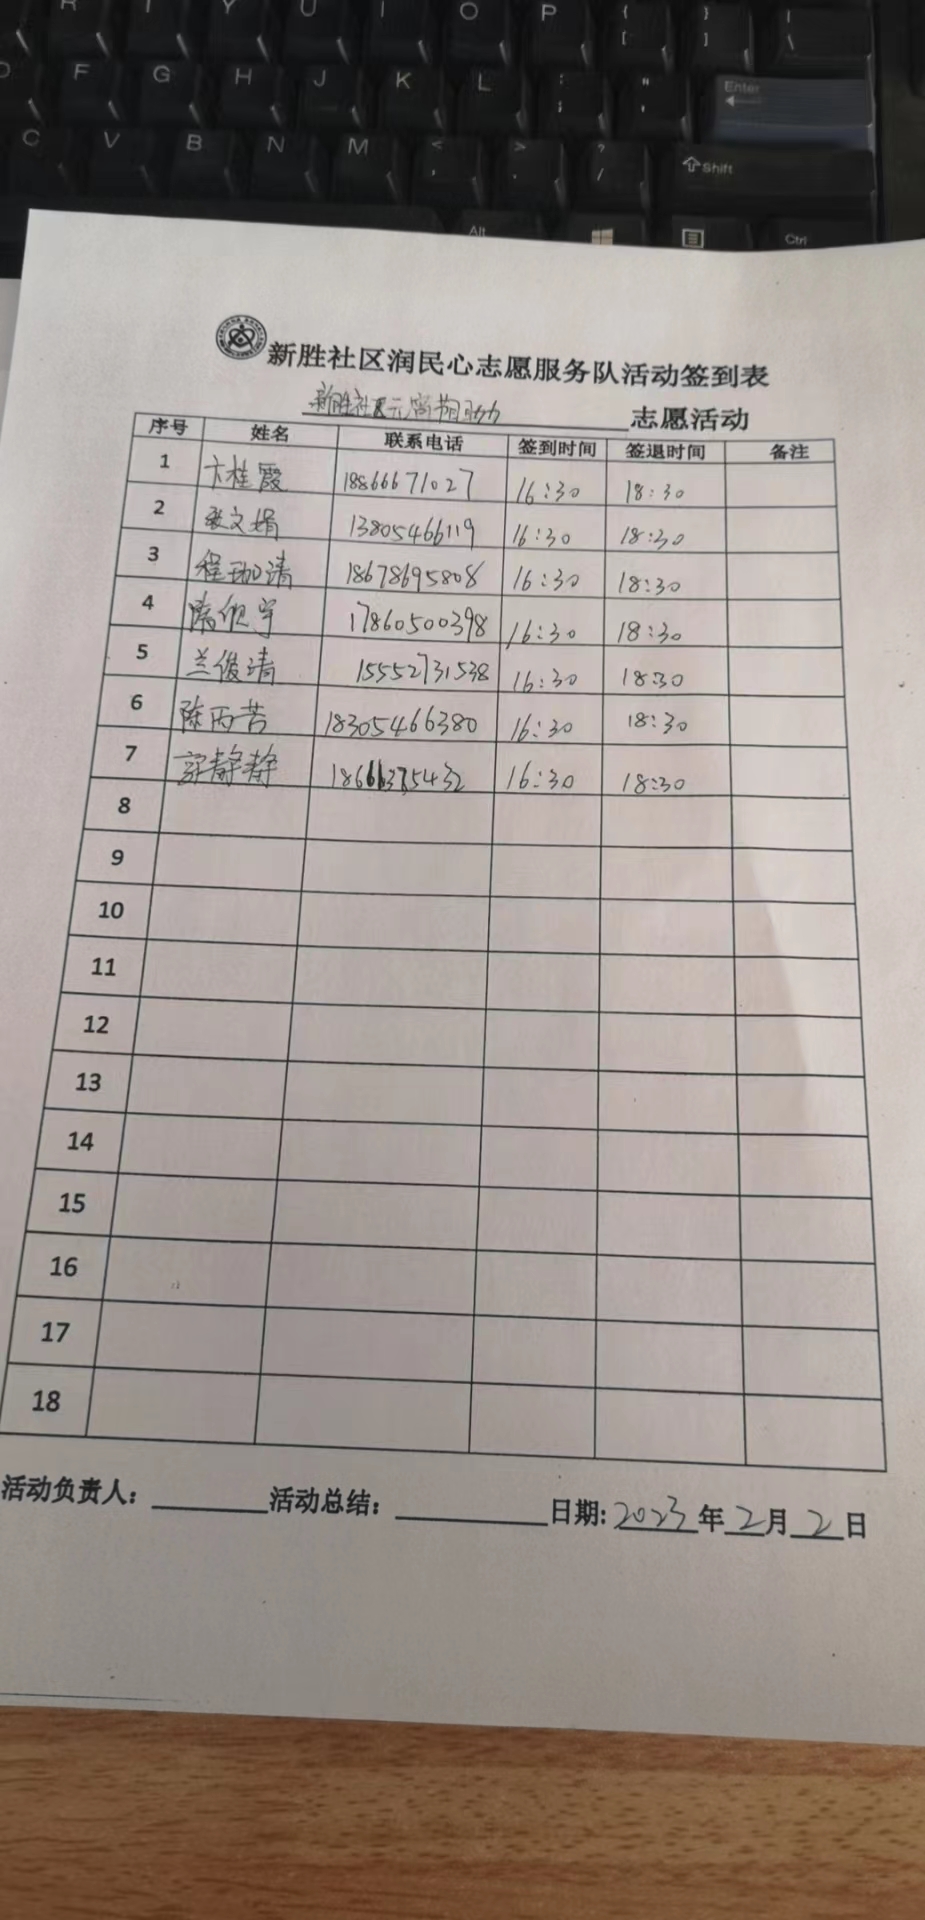 R T Y U I O P { [ } ] | \
D F G H J K L : ; " ' Enter
C V B N M < , > . ? / Shift
Alt Ctrl
新胜社区润民心志愿服务队活动签到表
新胜社区元宵节活动 志愿活动
序号 姓名 联系电话 签到时间 签退时间 备注
1 卞桂霞 18866671027 16:30 18:30
2 张文娟 13805466119 16:30 18:30
3 程珈清 18678695808 16:30 18:30
4 17860500398 16:30 18:30
5 兰俊清 15552731538 16:30 18:30
6 陈丙苦 18305466380 16:30 18:30
7 静静 16:30 18:30
8
9
10
11
12
13
14
15
16
17
18
活动负责人: 活动总结: 日期: 2023 年 2 月 2 日